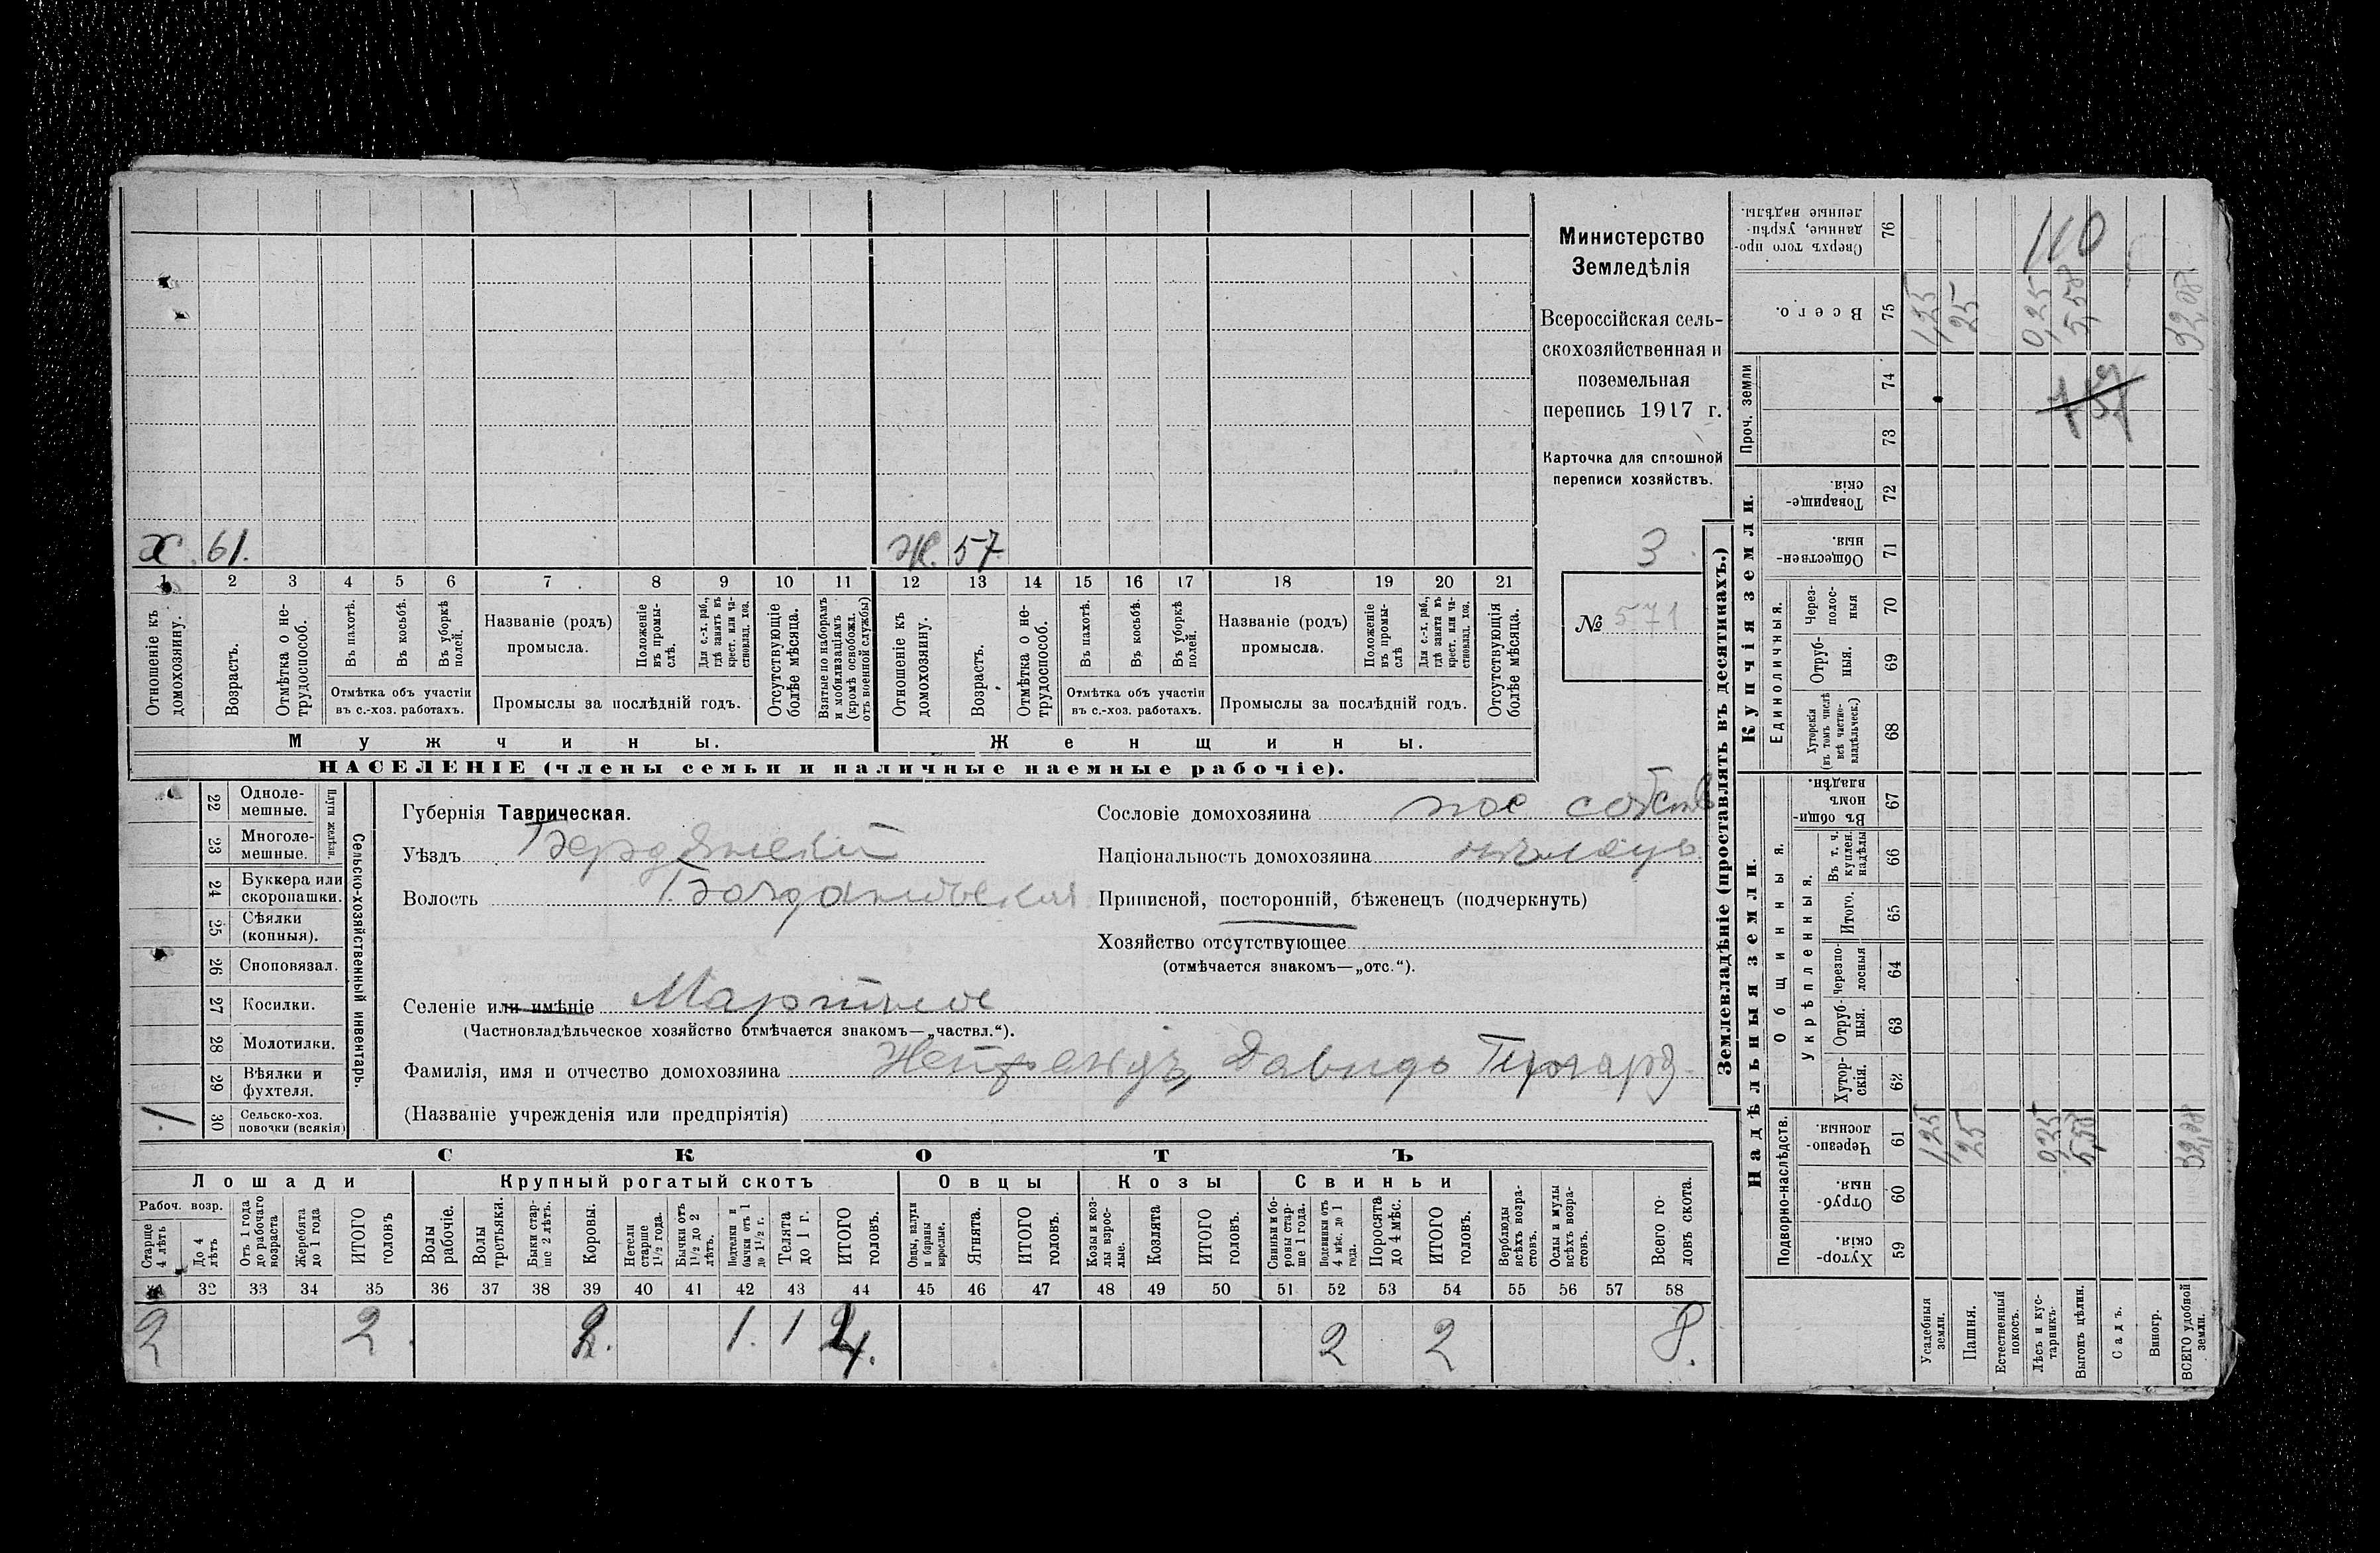 Министерство
Земледѣлія
Всероссійская сель-
скохозяйственная и
поземельная
перепись 1917 г.
Карточка для сплошной
переписи хозяйствъ.
3
№ 571
х. 61. ж. 57.
1 2 3 4 5 6 7 8 9 10 11 12 13 14 15 16 17 18 19 20 21
Отношеніе къ домохозяину.
Возрастъ.
Отмѣтка о не-трудоспособ.
Въ пахотѣ.
Въ косьбѣ.
Въ уборкѣ полей.
Отмѣтка объ участіи въ с.-хоз. работахъ.
Названіе (родъ) промысла.
Положеніе въ промы-слѣ.
Для с.-х. раб., гдѣ занятъ въ крест. или ча-ствовлад. хоз.
Промыслы за послѣдній годъ.
Отсутствующіе болѣе мѣсяца.
Взятые по наборамъ и мобилизаціямъ (кромѣ освобожд. отъ военной службы)
Отношеніе къ домохозяину.
Возрастъ.
Отмѣтка о не-трудоспособ.
Въ пахотѣ.
Въ косьбѣ.
Въ уборкѣ полей.
Отмѣтка объ участіи въ с.-хоз. работахъ.
Названіе (родъ) промысла.
Положеніе въ промы-слѣ
Для с.-х. раб., гдѣ занята въ крест. или ча-ствовлад. хоз.
Промыслы за послѣдній годъ.
Отсутствующія болѣе мѣсяца.
Мужчины. Женщины.
НАСЕЛЕНІЕ (члены семьи и наличные наемные рабочіе).
Сельско-хозяйственный инвентарь.
Плуги желѣзн.
22 Одноле-мешные.
23 Многоле-мешные.
24 Буккера или скоропашки.
25 Сѣялки (конныя).
26 Сноповязал.
27 Косилки.
28 Молотилки.
29 Вѣялки и фухтеля.
1 30 Сельско-хоз. повочки (всякія)
Губернія Таврическая.
Уѣздъ Бердянскій
Волость Богдановская
Сословіе домохозяина пос собств
Національность домохозяина нѣмецъ
Приписной, посторонній, бѣженецъ (подчеркнуть)
Хозяйство отсутствующее
(отмѣчается знакомъ—„отс.“).
Селеніе или имѣніе
(Частновладѣльческое хозяйство отмѣчается знакомъ—„частвл.“).
Фамилія, имя и отчество домохозяина Давидъ
(Названіе учрежденія или предпріятія)
СКОТЪ
Лошади Крупный рогатый скотъ Овцы Козы Свиньи
Рабоч. возр.
Старше 4 лѣтъ
До 4 лѣтъ
Отъ 1 года до рабочаго возраста
Жеребята до 1 года
ИТОГО головъ
Волы рабочіе.
Волы третьяки.
Быки стар-ше 2 лѣтъ.
Коровы.
Нетели старше 1 1/2 года.
Бычки отъ 1 1/2 до 2 лѣтъ.
Подтелки и бычки отъ 1 до 1 1/2 г.
Телята до 1 г.
ИТОГО головъ.
Овцы, валухи и бараны взрослые.
Ягнята.
ИТОГО головъ.
Козы и коз-лы взрос-лые.
Козлята
ИТОГО головъ.
Свиньи и бо-ровы стар-ше 1 года.
Подсвинки отъ 4 мѣс. до 1 года.
Поросята до 4 мѣс.
ИТОГО головъ.
Верблюды всѣхъ возра-стовъ.
Ослы и мулы всѣхъ возра-стовъ.
Всего го-ловъ скота.
32 33 34 35 36 37 38 39 40 41 42 43 44 45 46 47 48 49 50 51 52 53 54 55 56 57 58
2 2. 2. 1. 1 4. 2 2 8.
Землевладѣніе (проставлять въ десятинахъ.)
Надѣльныя земли. Купчія земли.
Проч. земли
Подворно-наслѣдств.
Общинныя.
Укрѣпленныя.
Единоличныя.
Хутор-скія. 59
Отруб-ныя. 60
Черезпо-лосныя. 61
Хутор-скія. 62
Отруб-ныя. 63
Черезпо-лосныя 64
Итого. 65
Въ т. ч. куплен. надѣлы 66
Въ общи-номъ владѣн. 67
Хуторскія (въ томъ числѣ всѣ частно-владѣльческ.) 68
Отруб-ныя. 69
Через-полос-ныя 70
Обществен-ныя. 71
Товарище-скія. 72
73
74
Всего. 75
Сверхъ того про-данные, укрѣп-ленные надѣлы. 76
Усадебныя земли. 1,25 1,25
Пашня. 25 25
Естественный покосъ.
Лѣсъ и кус-тарникъ. 0,25 0,25
Выгонъ цѣлин. 5,58 5,58
Садъ.
Виногр.
ВСЕГО удобной земли. 32,08 32,08
110